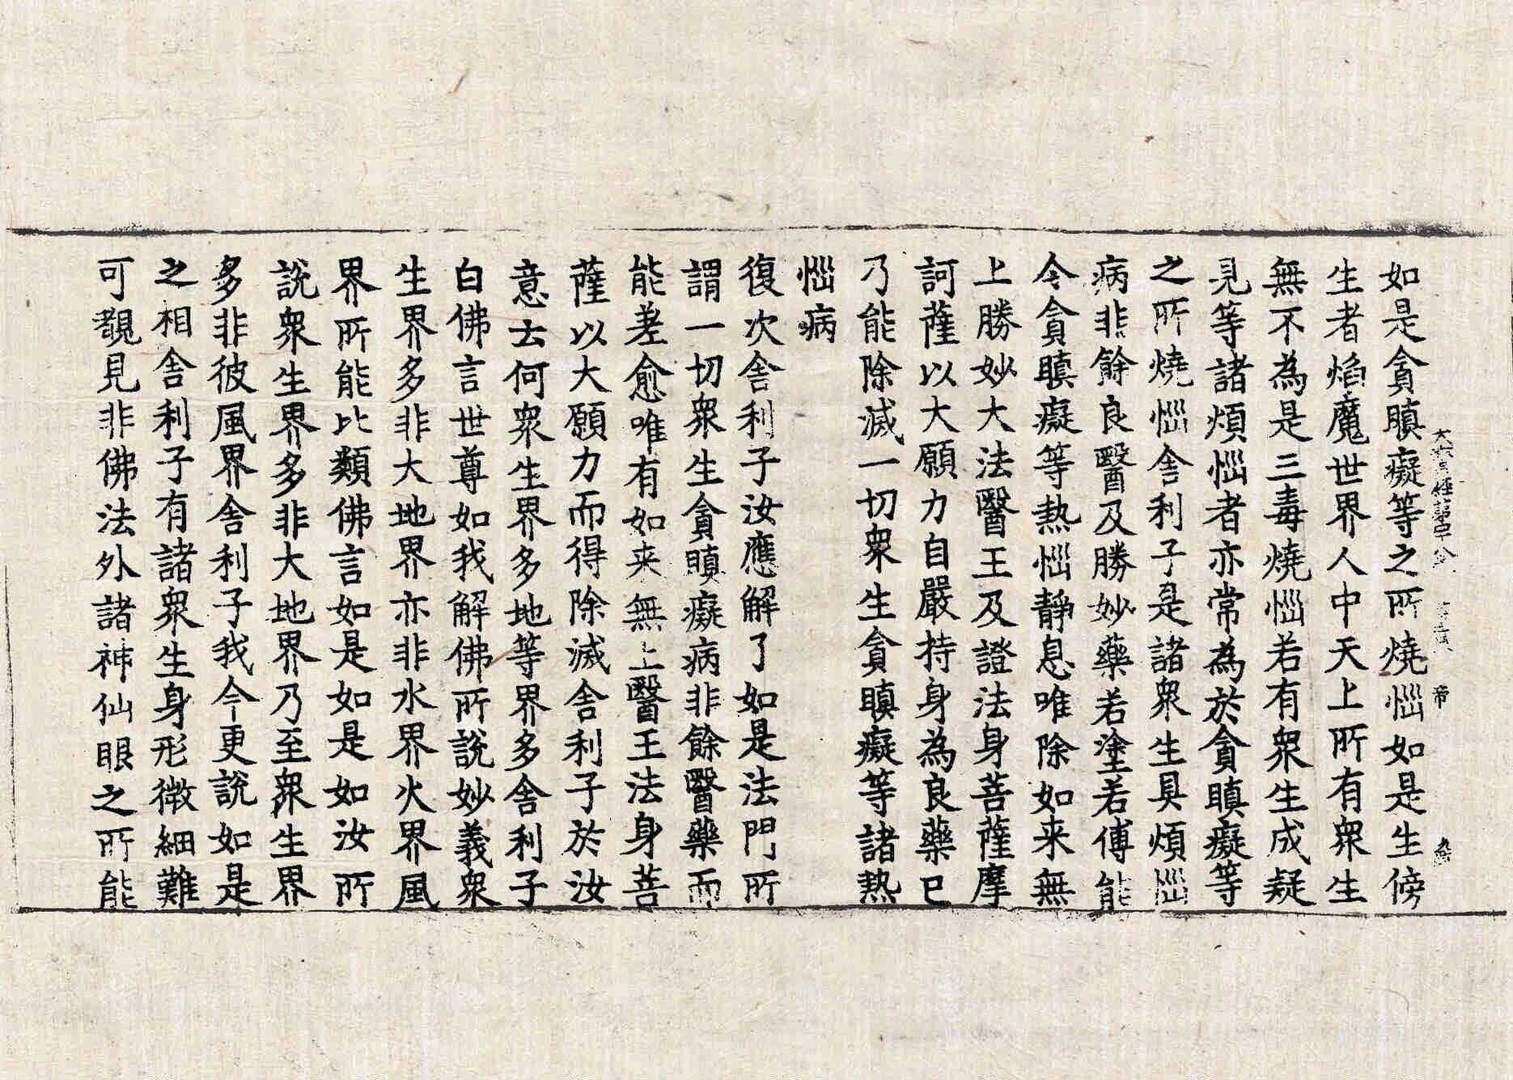 如是貪瞋癡等之所燒惱如是生傍
生者焰魔世界人中天上所有衆生
無不為是三毒燒惱若有衆生成疑
見等諸煩惱者亦常為於貪瞋癡等
之所燒惱舍利子是諸衆生具煩惱
病非餘良醫及勝妙藥若塗若傅能
令貪瞋癡等熱惱靜息唯除如来無
上勝妙大法醫王及證法身菩薩摩
訶薩以大願力自嚴持身為良藥已
乃能除滅一切衆生貪瞋癡等諸熱
惱病
復次舍利子汝應解了如是法門所
謂一切衆生貪瞋癡病非餘醫藥而
能差愈唯有如来無上醫王法身菩
薩以大願力而得除滅舍利子於汝
意云何衆生界多地等界多舍利子
白佛言世尊如我解佛所說妙義衆
生界多非大地界亦非水界火界風
界所能比類佛言如是如是如汝所
說衆生界多非大地界乃至衆生界
多非彼風界舍利子我今更說如是
之相舍利子有諸衆生身形微細難
可覩見非佛法外諸神仙眼之所能